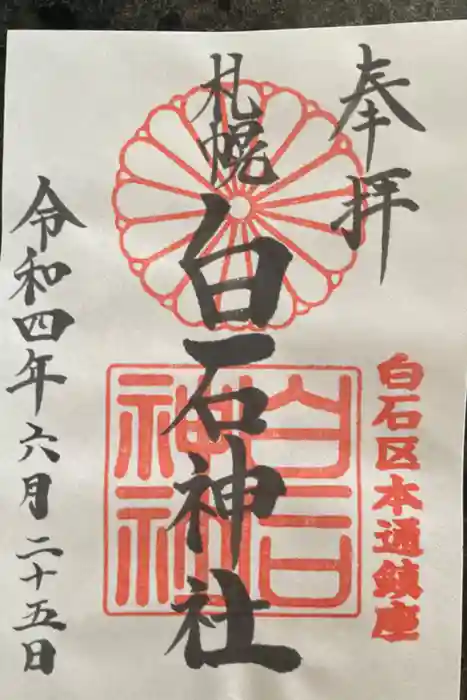 奉拝
札幌
白石神社
白石区本通鎮座
白石
神社
令和四年六月二十五日